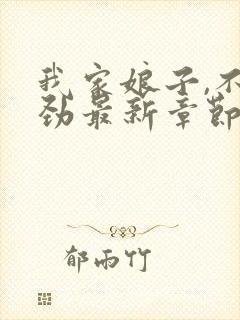 我家娘子,不
劲最新章節
郁雨竹